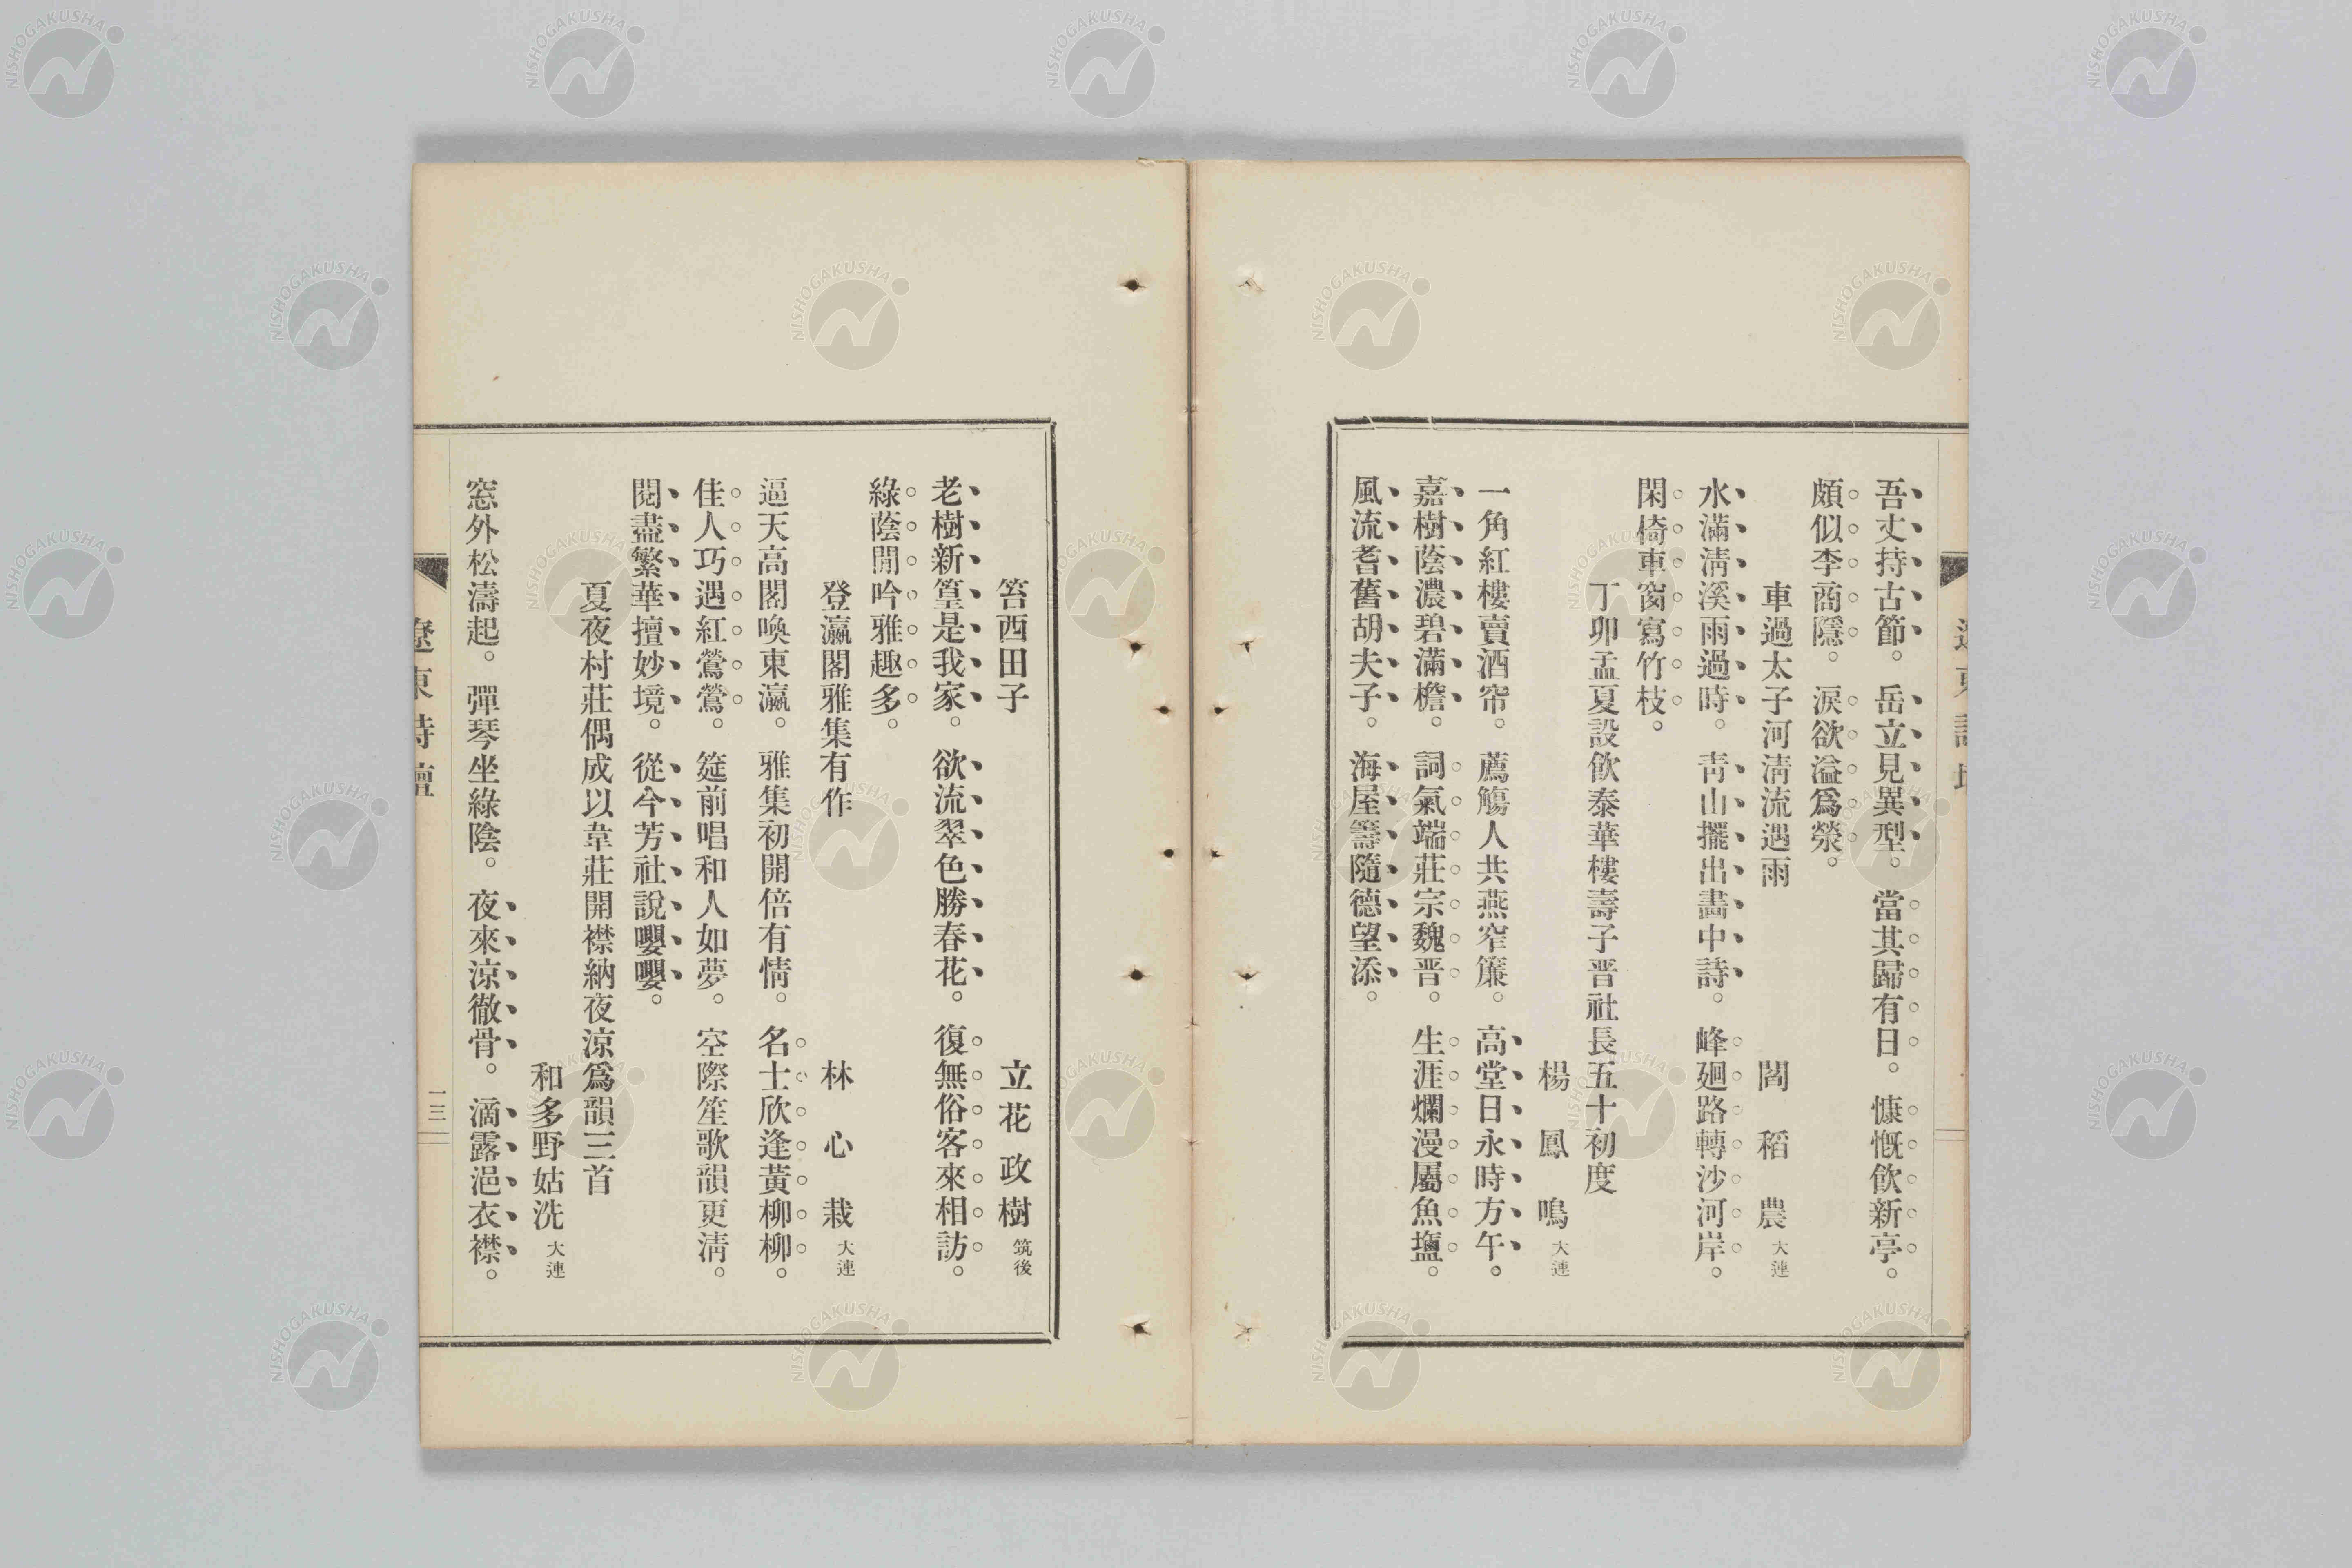 吾丈持古節。岳立見異型。當其歸有日。慷慨飮新亭。
頗似李商隱。淚欲溢爲滎。
車過太子河淸流遇雨
閻稻農 大連
水滿淸溪雨過時。靑山擺出畵中詩。峰廻路轉沙河岸。
閑倚車窗寫竹枝。
丁卯孟夏設飮泰華樓壽子晋社長五十初度
楊鳳鳴 大連
一角紅樓賣酒帘。薦觴人共燕窄簾。高堂日永時方午。
嘉樹蔭濃碧滿檐。詞氣端莊宗魏晋。生涯爛漫屬魚鹽。
風流耆舊胡夫子。海屋籌隨德望添。
笞西田子
立花政樹 筑後
老樹新篁是我家。欲流翠色勝春花。復無俗客來相訪。
綠蔭閒吟雅趣多。
登瀛閣雅集有作
林心栽 大連
逼天高閣喚東瀛。雅集初開倍有情。名士欣逢黃柳柳。
佳人巧遇紅鶯鶯。筵前唱和人如夢。空際笙歌韻更淸。
閱盡繁華擅妙境。從今芳社說嚶嚶。
夏夜村莊偶成以韋莊開襟納夜涼爲韻三首
和多野姑洗 大連
窓外松濤起。彈琴坐綠陰。夜來涼徹骨。滴露浥衣襟。
遼東詩壇
一三